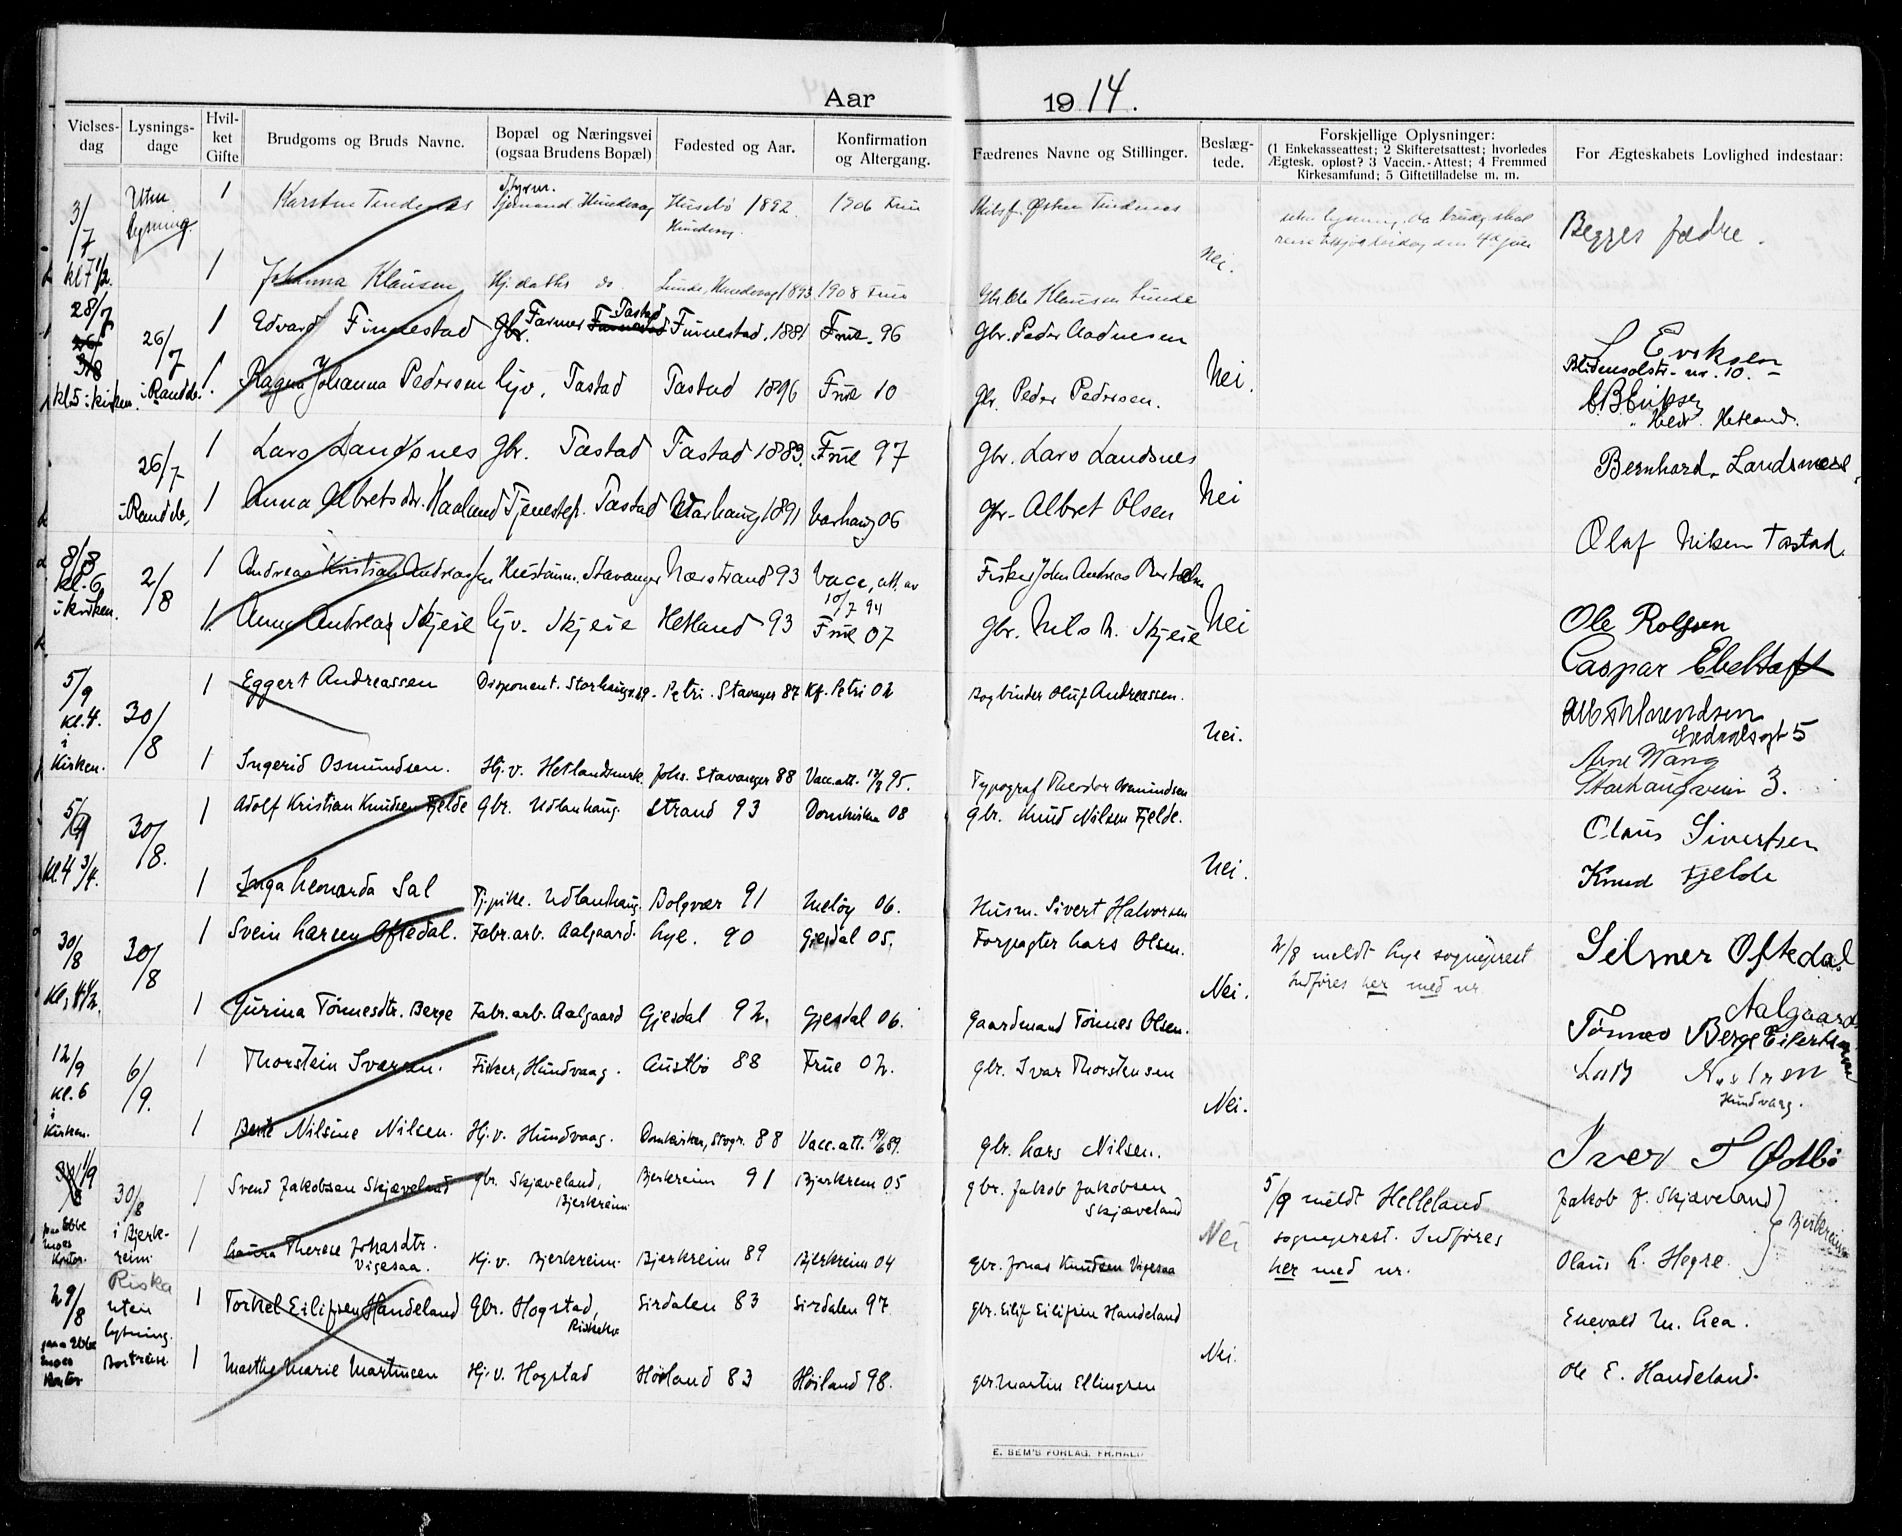 Aar 1914.
Vielses-dag | Lysnings-dage | Hvil-ket Gifte | Brudgoms og Bruds Navne. | Bopæl og Næringsvei (ogsaa Brudens Bopæl) | Fødested og Aar. | Konfirmation og Altergang. | Fædrenes Navne og Stillinger. | Beslæg-tede. | Forskjellige Oplysninger: (1 Enkekasseattest; 2 Skifteretsattest; hvorledes Ægtesk. opløst? 3 Vaccin.-Attest; 4 Fremmed Kirkesamfund; 5 Giftetilladelse m. m. | For Ægteskabets Lovlighed indestaar:
3/7 kl 7 1/2. | Uten lysning. | 1 | Karsten Tendenes | Styrm. Sjømand Hundvaag | Husebø 1892 Hundvaag. | 1906 Frue | Østen Tendenes | Nei. | uten lysning, da brudg. skal reise | Begges fædre.
1 | Johanna Klausen | Hj. datter do. | Lunde, Hundvaag 1893 | 1908 Frue | Gbr. Ole Klausen Lunde
28/7 kl. 5 i kirken. | 26/7 i Randeb. | 1 | Edvard Finnestad | Gbr. Farmer Tastad | Finnestad, 1881 | Frue. 96 | Gbr. Peder Aadnesen | Nei. | L Eriksen Blidensolstr. nr. 10.
1. | Ragna Johanna Pedersen | Hjv. Tastad | Tastad 1896 | Frue 10 | Gbr. Peder Pedersen. | Hetland.
26/7 i Randeb. | 1 | Lars Landsnes | Gbr. Tastad | Tastad 1883. | Frue 97 | Gbr. Lars Landsnes | Nei | Bernhard. Landsnes
1 | Anna Albretsdtr. Haaland | Tjenestep. Tastad | Varhaug 1891 | Varhaug 06 | Gbr. Albret Olsen | Olaf Nilsen Tastad.
8/8 kl. 6 i kirken. | 2/8 | 1 | Andreas Kristian Andreassen | Stavanger | Nærstrand 93 | Vacc, att. av 10/7 94 | Fisker John Andreas | Nei | Ole Rolfsen
1. | Anna Andrea Skjeie | Hjv. Skjeie | Hetland 93 | Frue 07 | Gbr. Nils N. Skjeie | Caspar Ebeltoft
5/9 kl. 4. i Kirken. | 30/8 | 1 | Eggert Andreassen | Disponent. Storhaugv. 39. | Petri. Stavanger 87 | Kf. Petri 02 | Bogbinder Oluf Andreassen. | Nei.
1 | Ingerid Osmundsen. | Hj.v. Hetlandsmrk. | Johs. Stavanger 88 | Vacc.att. 95. | Typograf Theodor Osmundsen | Arne Wang Storhaugveien 3.
5/9 kl. 4 3/4. | 30/8. | 1 | Adolf Kristian Knudsen Fjelde | Gbr. Udlanhaug. | Strand 93 | Domkirken 08 | Gbr. Knud Nilsen Fjelde. | Nei. | Olaus Sivertsen
1 | Inga Leonarda Sal | Tj.pike. Udlanhaug. | Bolgvær 91 | Meløy 06. | Husm. Sivert Halvorsen | Knud Fjelde
30/8 Kl. 4 1/2. | 30/8 | 1 | Svein Larsen Oftedal. | Fabr.arb. Aalgaard. | Lye. 90 | Gjesdal 05. | Forpagter Lars Olsen. | Nei. | 2/8 meldt Lye sogneprest Indføres her med nr | Selmer Oftedal Aalgaard
1 | Jurina Tønnesdtr. Berge | Fabr.arb. Aalgaard | Gjesdal 92. | Gjesdal 06. | Gaardmand Tønnes Olsen. | Tønnes Berge
12/9 kl. 6 i Kirken. | 6/9. | 1 | Thorstein Ivarsen. | Fisker, Hundvaag. | Austbø 88 | Frue 02. | Gbr. Ivar Thorstensen | Nei. | Lars Nilsen Hundvaag.
1 | Berte Nilsine Nilsen. | Hj.v. Hundvaag. | Domkirken, Stvgr. 88 | Vacc.att. 89. | Gbr. Lars Nilsen. | Iver T Østbø
1/9 paa Ebbe Moes Kontor. | 30/8 i Bjerk-reim | 1 | Svend Jakobsen Skjæveland | Gbr. Skjæveland, Bjerkreim | Bjerkreim 91 | Bjerkreim 05 | Gbr. Jakob Jakobsen Skjæveland | Nei | 5/9 meldt Helleland sogneprest. Indføres her med nr. | Jakob J. Skjæveland
1 | Laura Therese Johasdtr. Vigesaa. | Hj.v. Bjerkreim. | Bjerkreim 89 | Bjerkreim 04 | Gbr. Jonas Knudsen Vigesaa | Olaus L. Hegre. } Bjerkreim
29/8 paa Ebbe Moes Kontor | Riska uten lysning. Bortreise. | 1 | Torkel Eilifsen Handeland | Gbr. Hogstad, | Sirdalen 83 | Sirdalen 97. | Gbr. Eilif Eilifsen Handeland | Nei. | Enevald M. Lea.
1 | Marthe Marie Martinsen | Hj.v. Hogstad | Høiland 83 | Høiland 98. | Gbr. Martin Ellingsen | Ole E. Handeland.
E. SEM'S FORLAG, FR.HALD